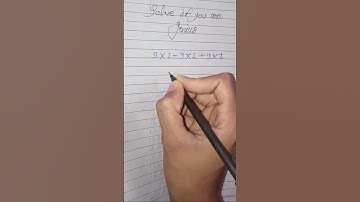 Solve if you are
Genius
9×1-9×1+9×1